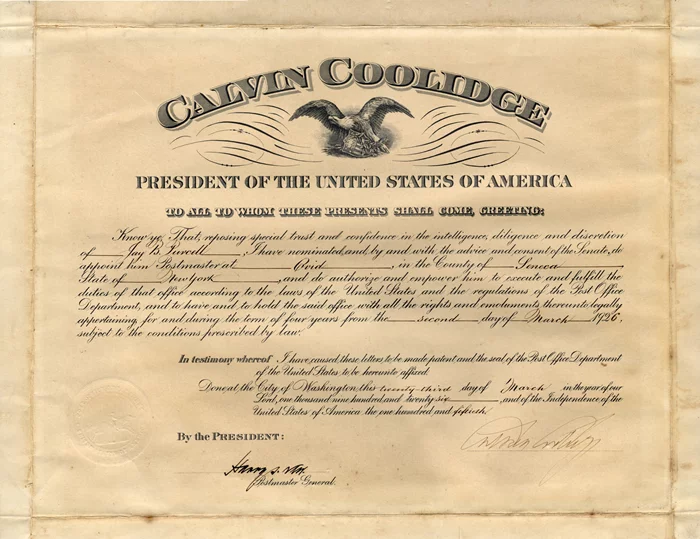 CALVIN COOLIDGE
PRESIDENT OF THE UNITED STATES OF AMERICA
TO ALL TO WHOM THESE PRESENTS SHALL COME, GREETING:
Know ye, That, reposing special trust and confidence in the intelligence, diligence and discretion
of Jay B. , I have nominated, and, by and with the advice and consent of the Senate, do
appoint him Postmaster at Ovid , in the County of Seneca
State of New York , and do authorize and empower him to execute and fulfill the
duties of that office according to the laws of the United States and the regulations of the Post Office
Department, and to have and to hold the said office, with all the rights and emoluments thereunto legally
appertaining, for and during the term of four years from the second day of March 1926,
subject to the conditions prescribed by law.
In testimony whereof I have caused these letters to be made patent and the seal of the Post Office Department
of the United States to be hereunto affixed.
Done at the City of Washington this twenty-third day of March in the year of our
Lord, one thousand nine hundred and twenty six , and of the Independence of the
United States of America the one hundred and fiftieth.
By the PRESIDENT:
Calvin Coolidge
Harry S. New
Postmaster General.